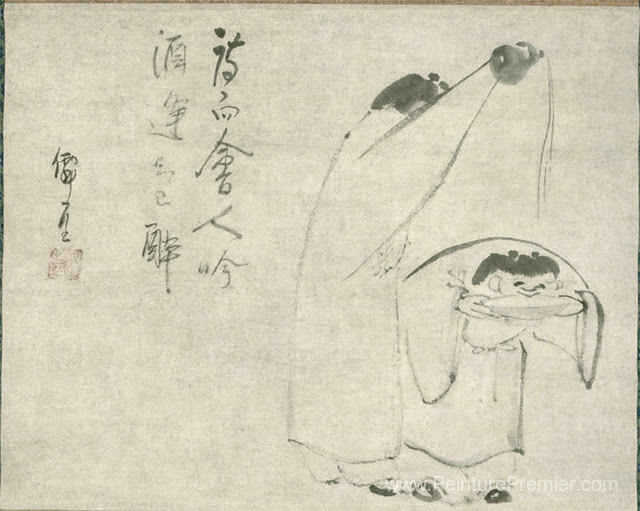 詩向會人吟
酒逢知己酔
僊厓
www.PeinturePremier.com